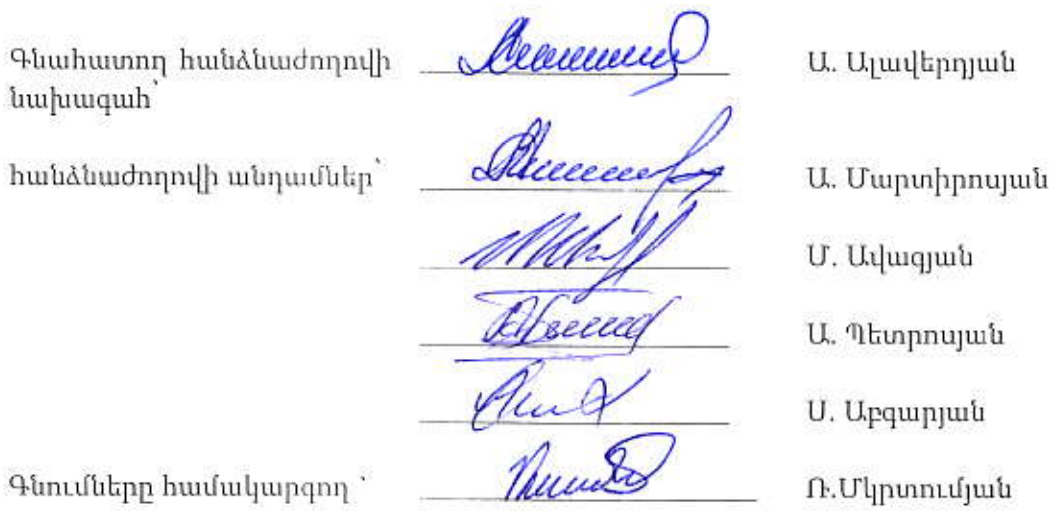 Գնահատող հանձնաժողովի Ա. Ալավերդյան
նախագահ՝
հանձնաժողովի անդամներ՝ Ա. Մարտիրոսյան
Մ. Ավագյան
Ա. Պետրոսյան
Ս. Աբգարյան
Գնումները համակարգող ՝ Ռ.Մկրտումյան